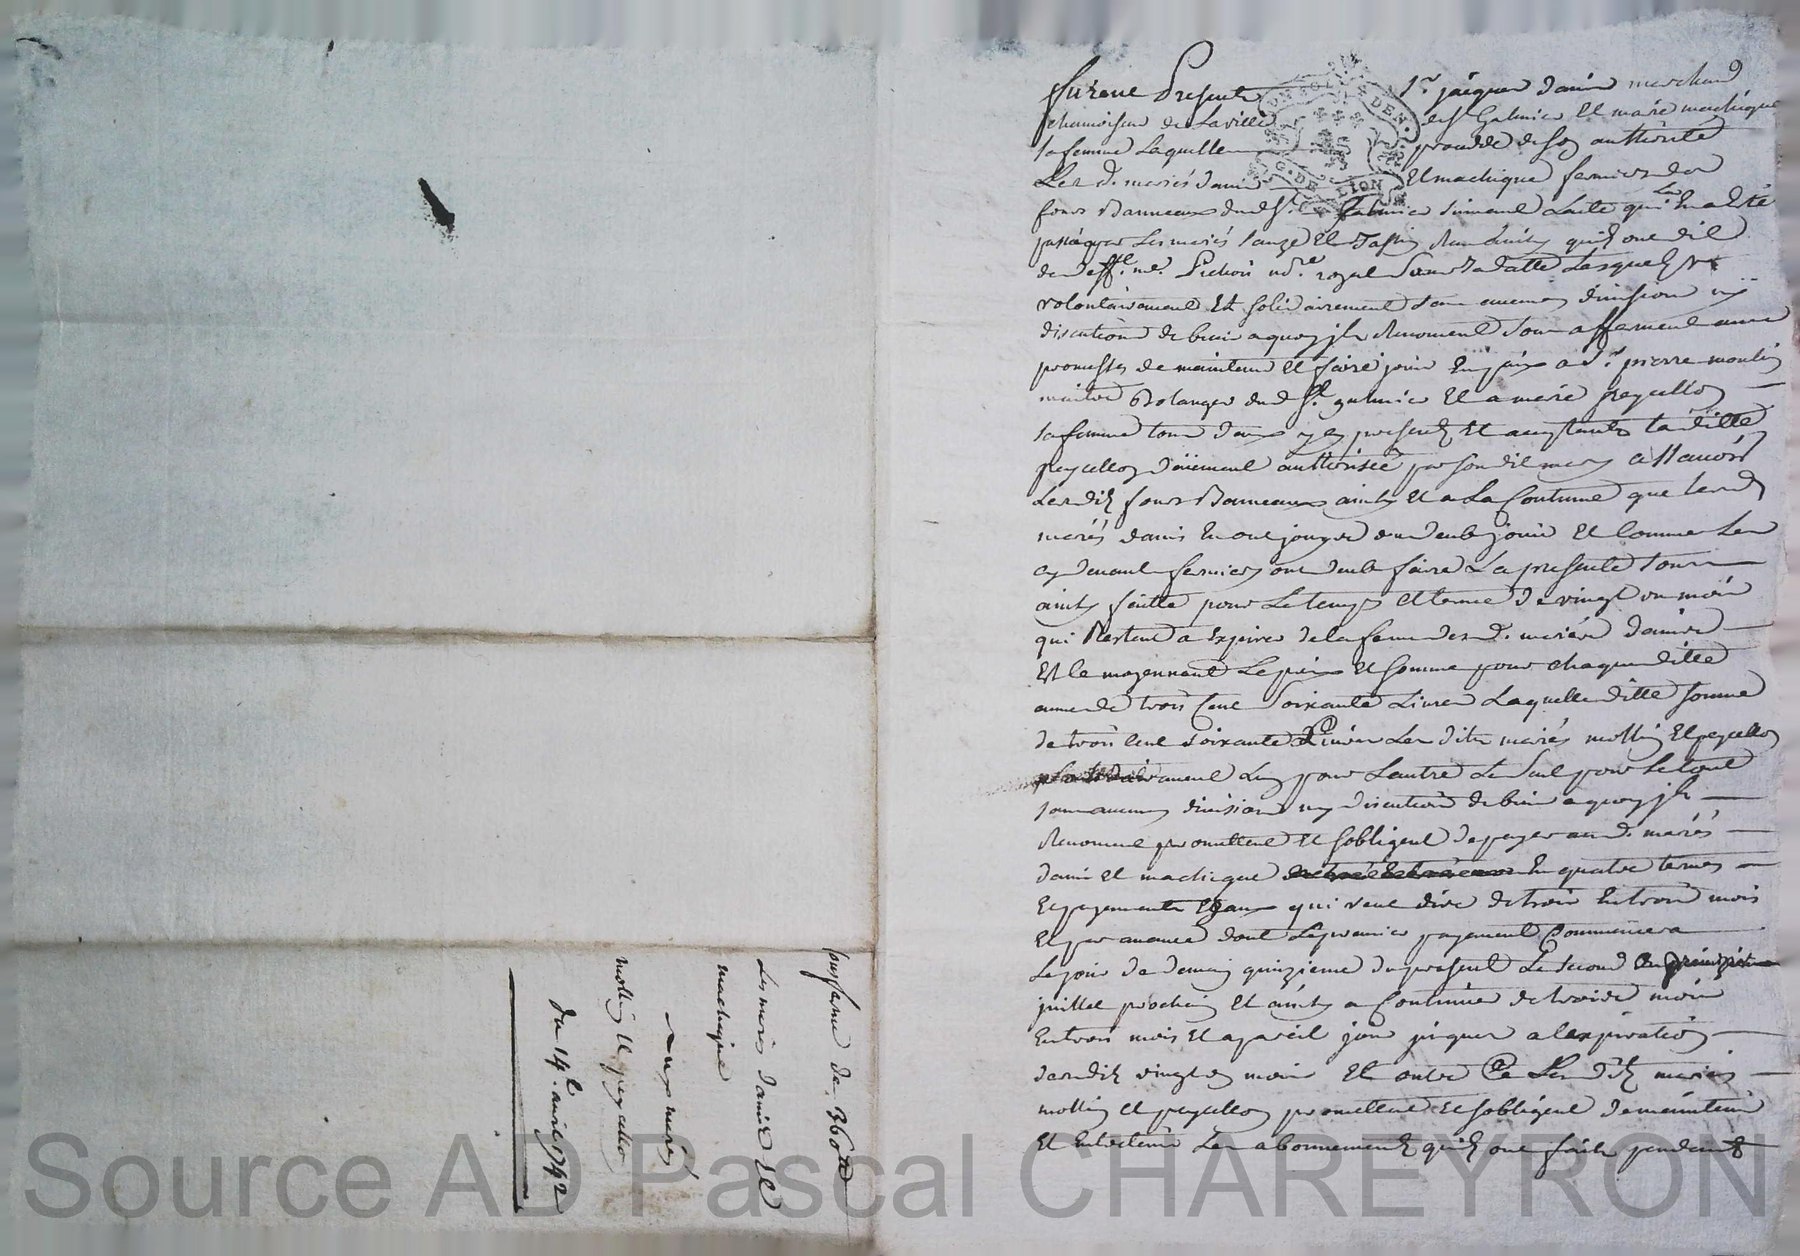 bussaime de 360 tt
Les mariés damié Et
machique
aux mariés
mollin Et peycellon
du 14e. avril 1742
furent Presents Sr. jacques damié marchand
chamoiseur de La ville de St Galmier Et marie machique
sa femme Laquelle procedde de son authorité
Les d. mariés damié Et machique fermiers des
fours Banneaux dud St. Galmier suivant L'acte qui Leur En a Esté
passé par Les mariés Et quils ont dit
Me. Pichon nore. royal Lesquels
volontairement Et solidairement sans aucune division ny
discution de biens a quoy jls Renoncent sous affermé avec
promesse de maintenir Et faire jouir En paix a Sr. pierre mollin
maitre Bolanger dud St. galmier Et a marie peycellon
sa femme tous deux jcy presents Et acceptants Ladditte
peycellon düement authorisée par son dit mary a Scavoir
Les dits fours Banneaux ainsy Et a La Coutume que Lesd
mariés damié En ont jouy ou deub jouir Et Comme Les
cy devant fermiers ont deub faire La presente sous
ainsy faitte pour Le temps Et terme de vingt un mois
qui Restent a Expirer de la ferme desd. mariés damié
Et le moyennant Le prix Et somme pour chaque ditte
année de trois Cent Soixante Livres Laquelle ditte somme
de trois Cent soixante Livres Les dits mariés mollin Et peycellon
solidairement L'un pour L'autre Le Seul pour Le tout
sans aucune division ny discution de biens a quoy jls
Renoncent promettent Et s'obligent de payer aud. mariés
damié Et machique En quatre termes
Et payements Egaux qui veut dire de trois En trois mois
Et par avance dont Le premier payement Commencera
Le jour de demain quinzieme du present Le second
juillet prochain Et ainsy a Continuer de trois mois
En trois mois Et a pareil jour jusques a l'expiration
desdits vingt un mois Et outre Ce Les dits mariés
mollin Et peycellon promettent Et s'obligent de maintenir
Et Entretenir Les abonnements quils ont faits pendant
DEN.
G. DE LION
Source AD Pascal CHAREYRON